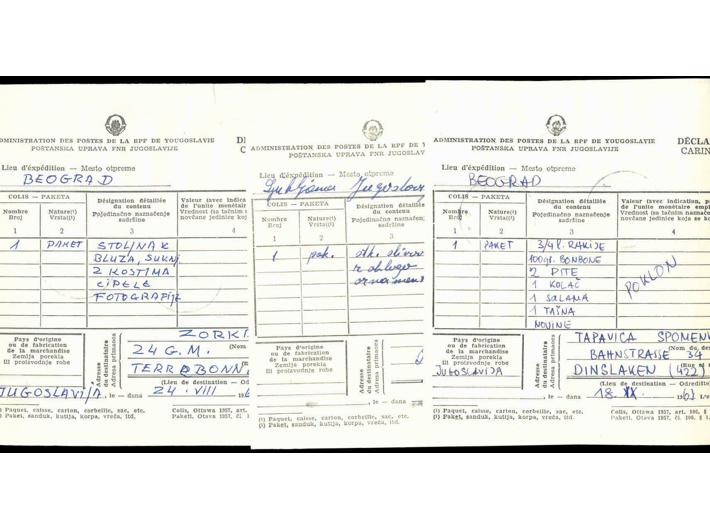 ADMINISTRATION DES POSTES DE LA RPF DE YOUGOSLAVIE
POŠTANSKA UPRAVA FNR JUGOSLAVIJE
DÉ
C
Lieu d'éxpédition — Mesto otpreme
BEOGRAD
COLIS — PAKETA
Nombre
Broj
Nature(¹)
Vrsta(²)
Désignation détaillée
du contenu
Pojedinačno naznačenje
sadržine
Valeur (avec indica
de l'unité monétaire
Vrednost (sa tačnim
novčane jedinice koj
1 2 3 4
1 PAKET STOLJNAK
BLUZA, SUKNJ
2 KOSTIMA
CIPELE
FOTOGRAFIJE
Pays d'origine
ou de fabrication
de la marchandise
Zemlja porekla
ili proizvodnje robe
Adresse
du destinataire
Adresa primaoca
ZORKI
24 G.M. (Nom
TERREBONN
(Lieu de destination —
JUGOSLAVIJA, le — dana 24 - VIII 196
(¹) Paquet, caisse, carton, corbeille, sac, etc.
(²) Paket, sanduk, kutija, korpa, vreća, itd.
Colis, Ottawa 1957,
Paketi, Otava 1957, čl.
ADMINISTRATION DES POSTES DE LA RPF DE Y
POŠTANSKA UPRAVA FNR JUGOSLAV
Lieu d'éxpédition — Mesto otpreme
Ljubljana Jugoslavij
COLIS — PAKETA
Nombre
Broj
Nature(¹)
Vrsta(²)
Désignation détaillée
du contenu
Pojedinačno naznačenje
sadržine
1 2 3
1 pak.
Pays d'origine
ou de fabrication
de la marchandise
Zemlja porekla
ili proizvodnje robe
Adresse
du destinataire
Adresa primaoca
, le — dana
(¹) Paquet, caisse, carton, corbeille, sac, etc.
(²) Paket, sanduk, kutija, korpa, vreća, itd.
ADMINISTRATION DES POSTES DE LA RPF DE YOUGOSLAVIE
POŠTANSKA UPRAVA FNR JUGOSLAVIJE
DÉCLA
CARIN
Lieu d'éxpédition — Mesto otpreme
BEOGRAD
COLIS — PAKETA
Nombre
Broj
Nature(¹)
Vrsta(²)
Désignation détaillée
du contenu
Pojedinačno naznačenje
sadržine
Valeur (avec indication, p
de l'unité monétaire empl
Vrednost (sa tačnim nazna
novčane jedinice koja se u
1 2 3 4
1 PAKET 3/4 l. RAKIJE
100gr. BONBONE
2 PITE
1 KOLAČ
1 SALAMA
1 TAŠNA
NOVINE
POKLON
Pays d'origine
ou de fabrication
de la marchandise
Zemlja porekla
ili proizvodnje robe
JUGOSLAVIJA
Adresse
du destinataire
Adresa primaoca
TAPAVICA SPOMEN
(Nom du
BAHNSTRASSE 34
DINSLAKEN (422)
(Lieu de destination — Odredište
, le — dana 18. 1961
(¹) Paquet, caisse, carton, corbeille, sac, etc.
(²) Paket, sanduk, kutija, korpa, vreća, itd.
Colis, Ottawa 1957, art. 106, §
Paketi, Otava 1957, čl. 106, § 1